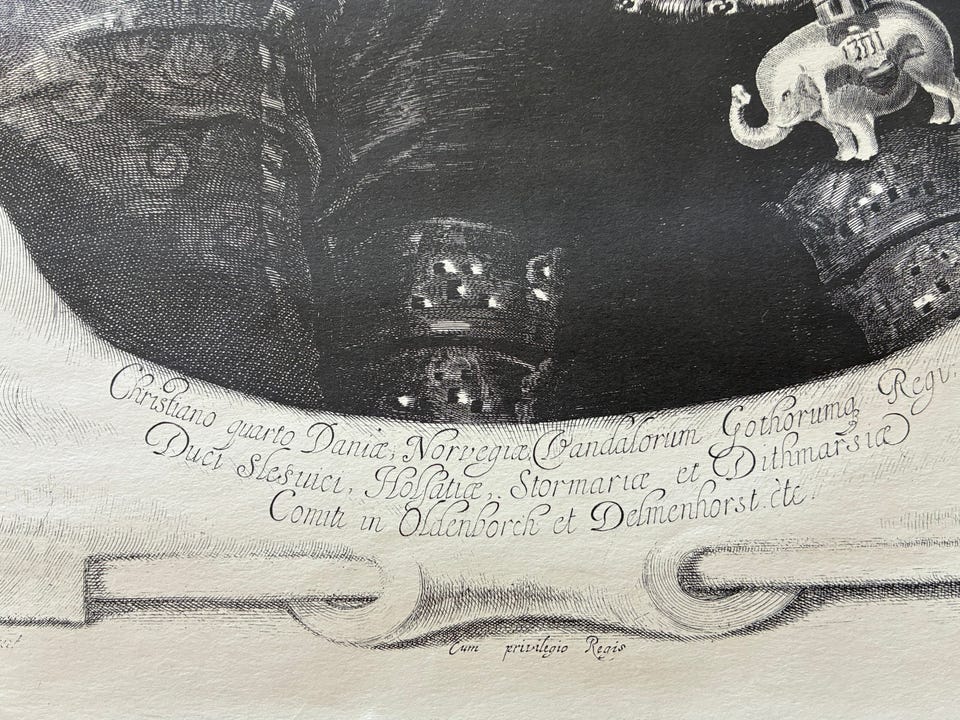 Christiano quarto Daniæ, Norvegiæ, Vandalorum Gothorumq Regi.
Duci Slesvici, Holsatiæ, Stormariæ et Dithmarsiæ
Comiti in Oldenborch et Delmenhorst. etc
Cum privilegio Regis